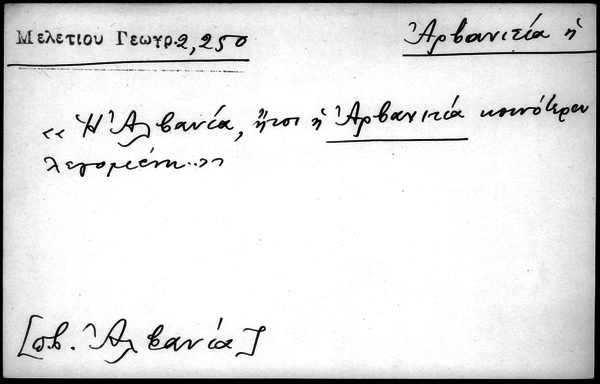 Μελετίου Γεωγρ. 2, 250
Ἀρβανιτία ἡ
«Ἡ Ἀλβανία, ἤτοι ἡ Ἀρβανιτία κοινότερον
λεγομένη..»
[πβ. Ἀλβανία]